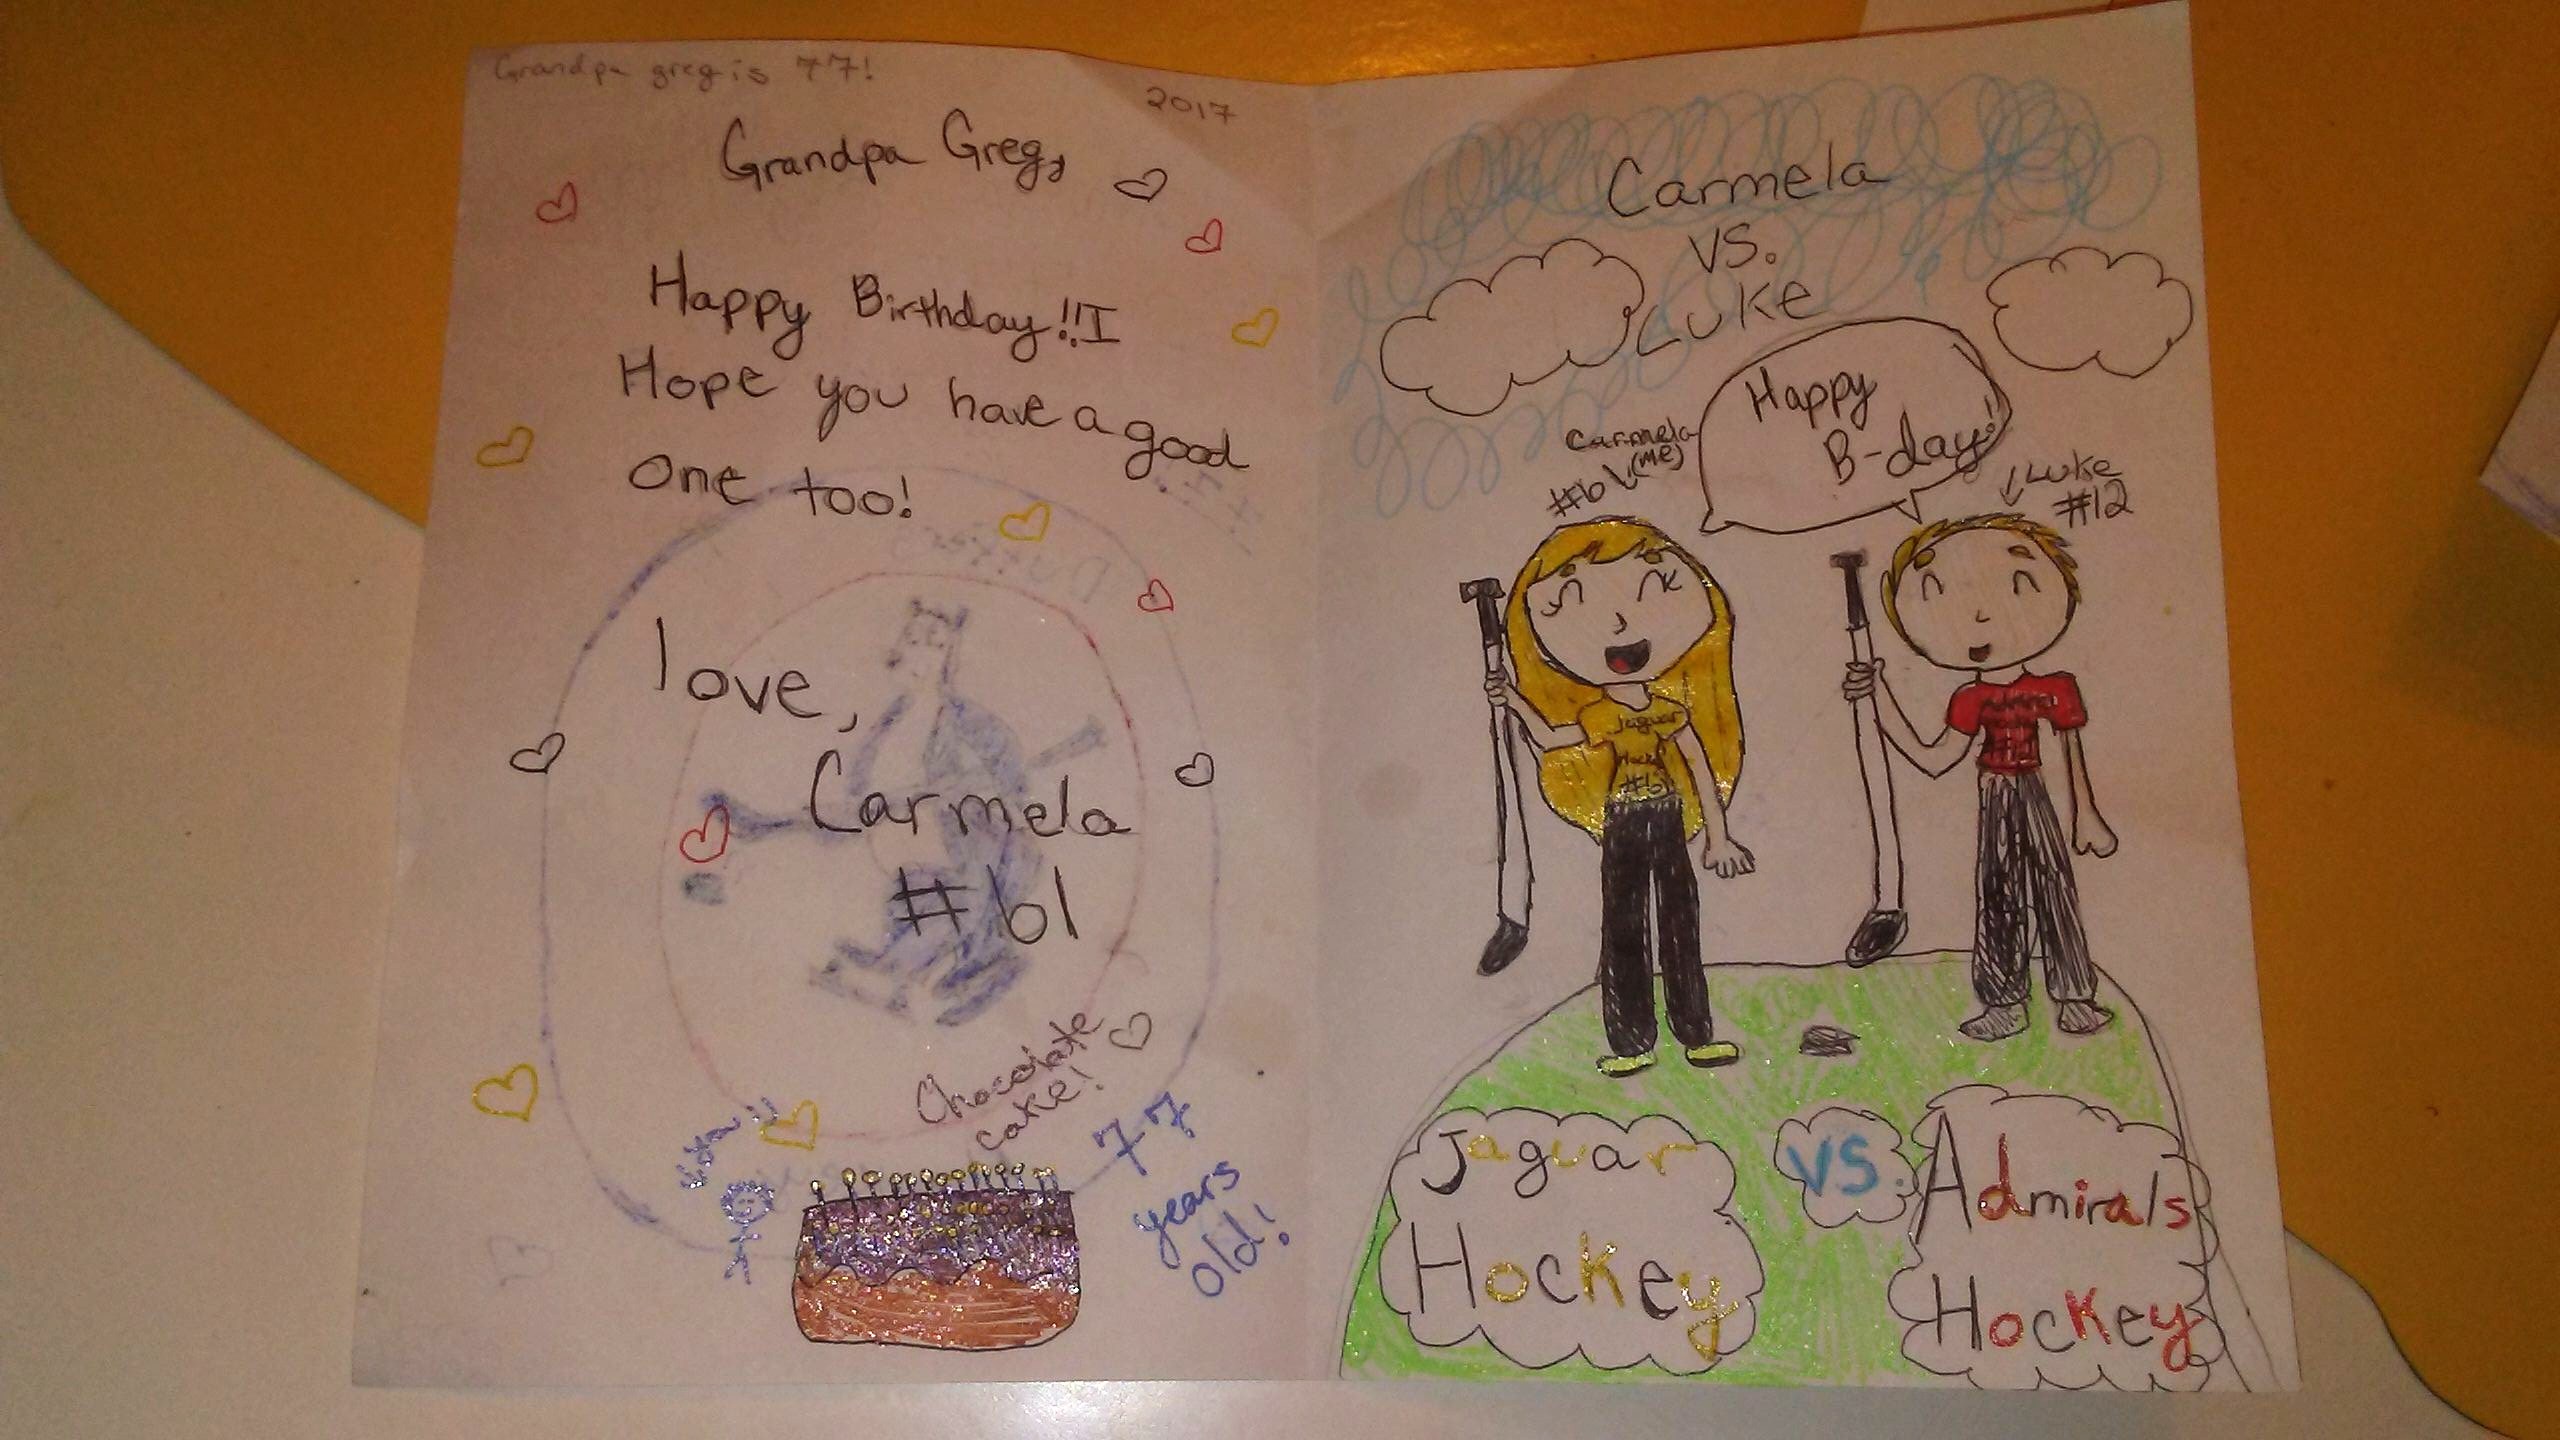 Grandpa greg is 77!
2017
Grandpa Greg,
Happy Birthday!! I
Hope you have a good
one too!
love,
Carmela
#61
Chocolate
cake!
77
years
old!
Carmela
vs.
Luke
Happy
B-day!
Carmela
(me)
#61
Luke
#12
Jaguar
Hockey
#61
#12
Jaguar
Hockey
vs.
Admirals
Hockey